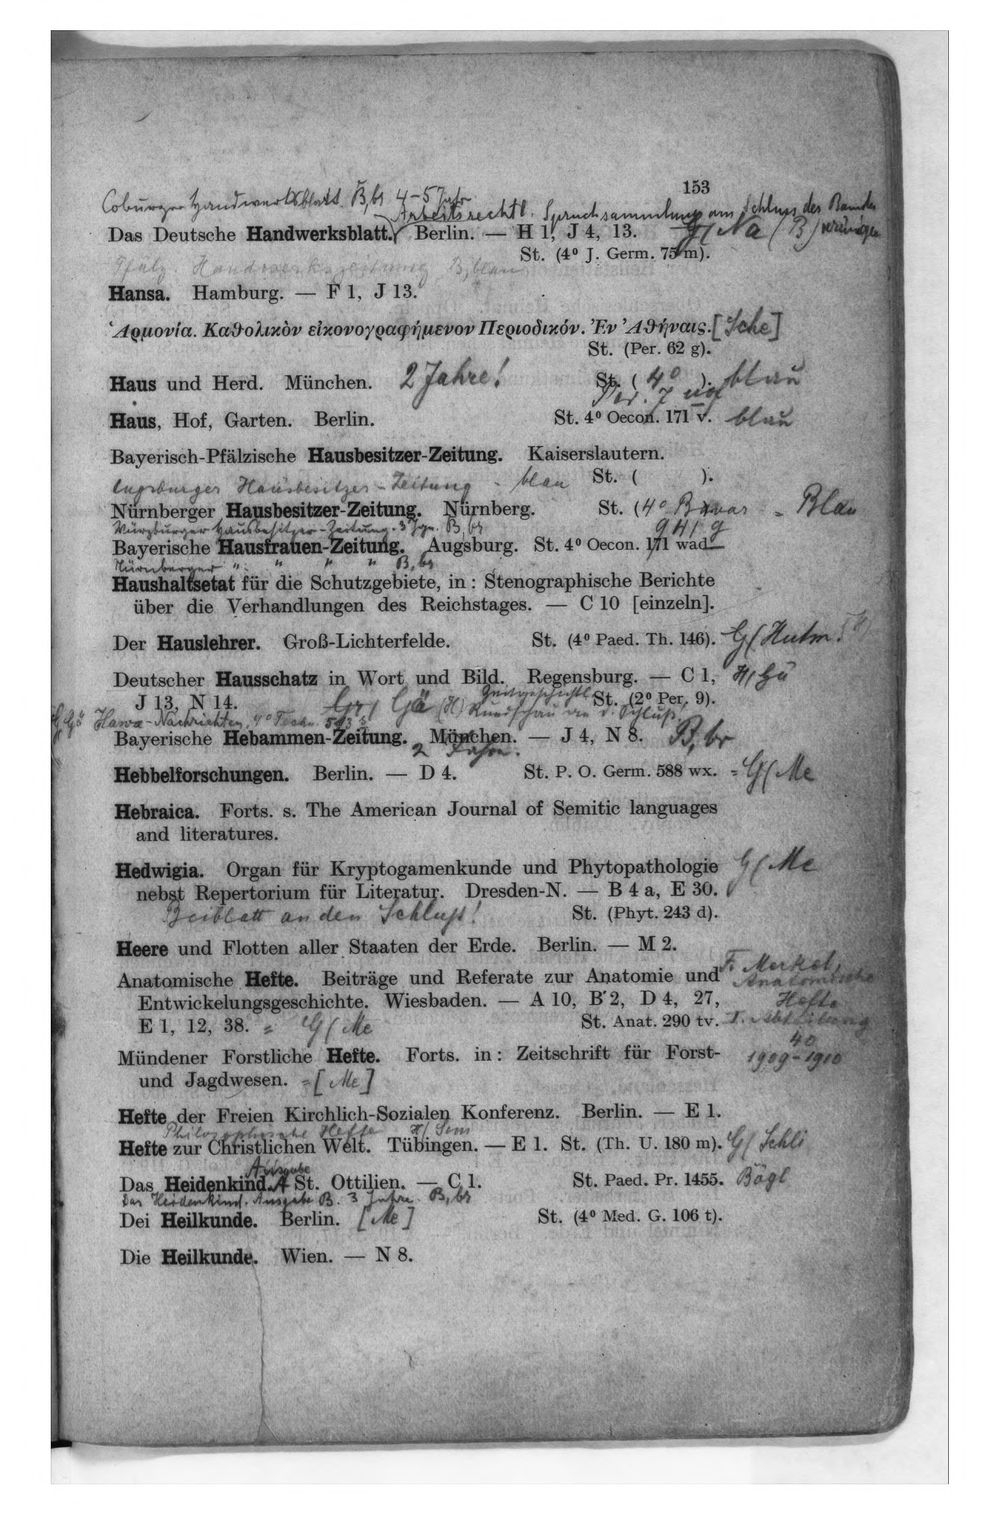 153
Coburger Handwerksblatt. B, br 4-5 Jahr
Arbeitsrechtl. Spruchsammlung am Schluss des Bandes
Das Deutsche Handwerksblatt. Berlin. — H 1, J 4, 13. G/Na (B)
St. (4° J. Germ. 75 m).
Pfälz. Handwerkszeitung B, blau
Hansa. Hamburg. — F 1, J 13.
Ἁρμονία. Καθολικὸν εἰκονογραφήμενον Περιοδικόν. Ἐν Ἀθήναις. [Sche]
St. (Per. 62 g).
Haus und Herd. München. 2 Jahre! St. (4° ). blau
Haus, Hof, Garten. Berlin. St. 4° Oecon. 171 v. blau
Bayerisch-Pfälzische Hausbesitzer-Zeitung. Kaiserslautern.
St. ( ).
Augsburger Hausbesitzer-Zeitung - blau
Nürnberger Hausbesitzer-Zeitung. Nürnberg. St. (4° Bavar - Blau
941 g
Würzburger Hausbesitzer-Zeitung. 3 Jgn. B, br
Bayerische Hausfrauen-Zeitung. Augsburg. St. 4° Oecon. 171 wad
Nürnberger " " " B, br
Haushaltsetat für die Schutzgebiete, in: Stenographische Berichte
über die Verhandlungen des Reichstages. — C 10 [einzeln].
Der Hauslehrer. Groß-Lichterfelde. St. (4° Paed. Th. 146). G/Hutm.
Deutscher Hausschatz in Wort und Bild. Regensburg. — C 1, H/Gü
J 13, N 14. St. (2° Per. 9).
Rundschau an d. Schluß
Hawa-Nachrichten, 4° Techn.
Bayerische Hebammen-Zeitung. München. — J 4, N 8. B, br
2 Jahre.
Hebbelforschungen. Berlin. — D 4. St. P. O. Germ. 588 wx. = G/Me
Hebraica. Forts. s. The American Journal of Semitic languages
and literatures.
Hedwigia. Organ für Kryptogamenkunde und Phytopathologie G/Me
nebst Repertorium für Literatur. Dresden-N. — B 4 a, E 30.
Beiblatt an den Schluß! St. (Phyt. 243 d).
Heere und Flotten aller Staaten der Erde. Berlin. — M 2.
Anatomische Hefte. Beiträge und Referate zur Anatomie und F. Merkel,
Anatomische
Entwickelungsgeschichte. Wiesbaden. — A 10, B 2, D 4, 27, Hefte
E 1, 12, 38. = G/Me St. Anat. 290 tv. I. Abteilung
40
Mündener Forstliche Hefte. Forts. in: Zeitschrift für Forst- 1909-1910
und Jagdwesen. = [Me]
Hefte der Freien Kirchlich-Sozialen Konferenz. Berlin. — E 1.
Philosophische Hefte H/Sem
Hefte zur Christlichen Welt. Tübingen. — E 1. St. (Th. U. 180 m). G/Schli
Ausgabe
Das Heidenkind. A St. Ottilien. — C 1. St. Paed. Pr. 1455. Bögl
Das Heidenkind. Ausgabe B. 3 Jahre. B, br
Dei Heilkunde. Berlin. [Me] St. (4° Med. G. 106 t).
Die Heilkunde. Wien. — N 8.